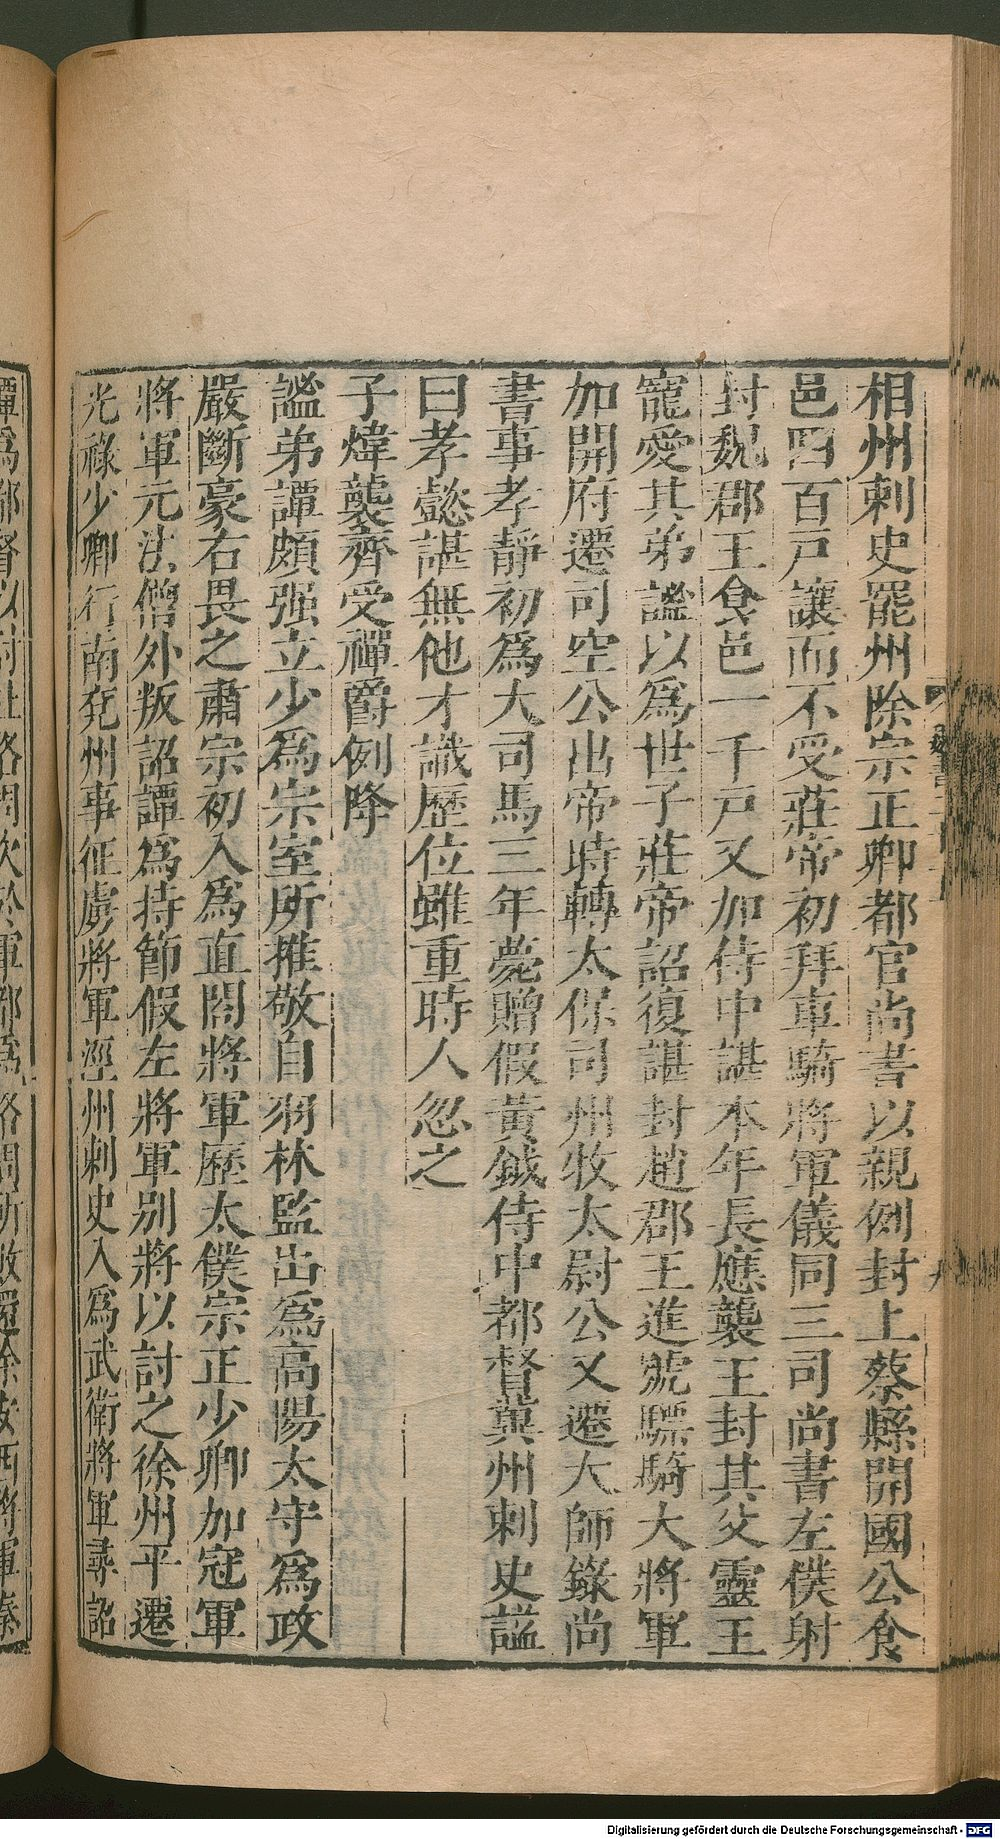 相州刺史罷州除宗正卿都官尚書以親例封上蔡縣開國公食
邑四百戸讓而不受莊帝初拜車騎將軍儀同三司尚書左僕射
封魏郡王食邑一千戸又加侍中諶本年長應襲王封其父靈王
寵愛其弟謐以爲世子莊帝詔復諶封趙郡王進號驃騎大將軍
加開府遷司空公出帝時轉太保司州牧太尉公又遷大師錄尚
書事孝靜初爲大司馬三年薨贈假黃鉞侍中都督冀州刺史謚
曰孝懿諶無他才識歷位雖重時人忽之
子煒襲齊受禪爵例降
謐弟譚頗强立少爲宗室所推敬自羽林監出爲高陽太守爲政
嚴斷豪右畏之肅宗初入爲直閤將軍歷太僕宗正少卿加冠軍
將軍元法僧外叛詔譚爲持節假左將軍别將以討之徐州平遷
光祿少卿行南兗州事征虜將軍涇州刺史入爲武衛將軍尋詔
譚爲都督以討杜洛周次於軍都爲洛周所敗還除安西將軍秦
Digitalisierung gefördert durch die Deutsche Forschungsgemeinschaft - DFG